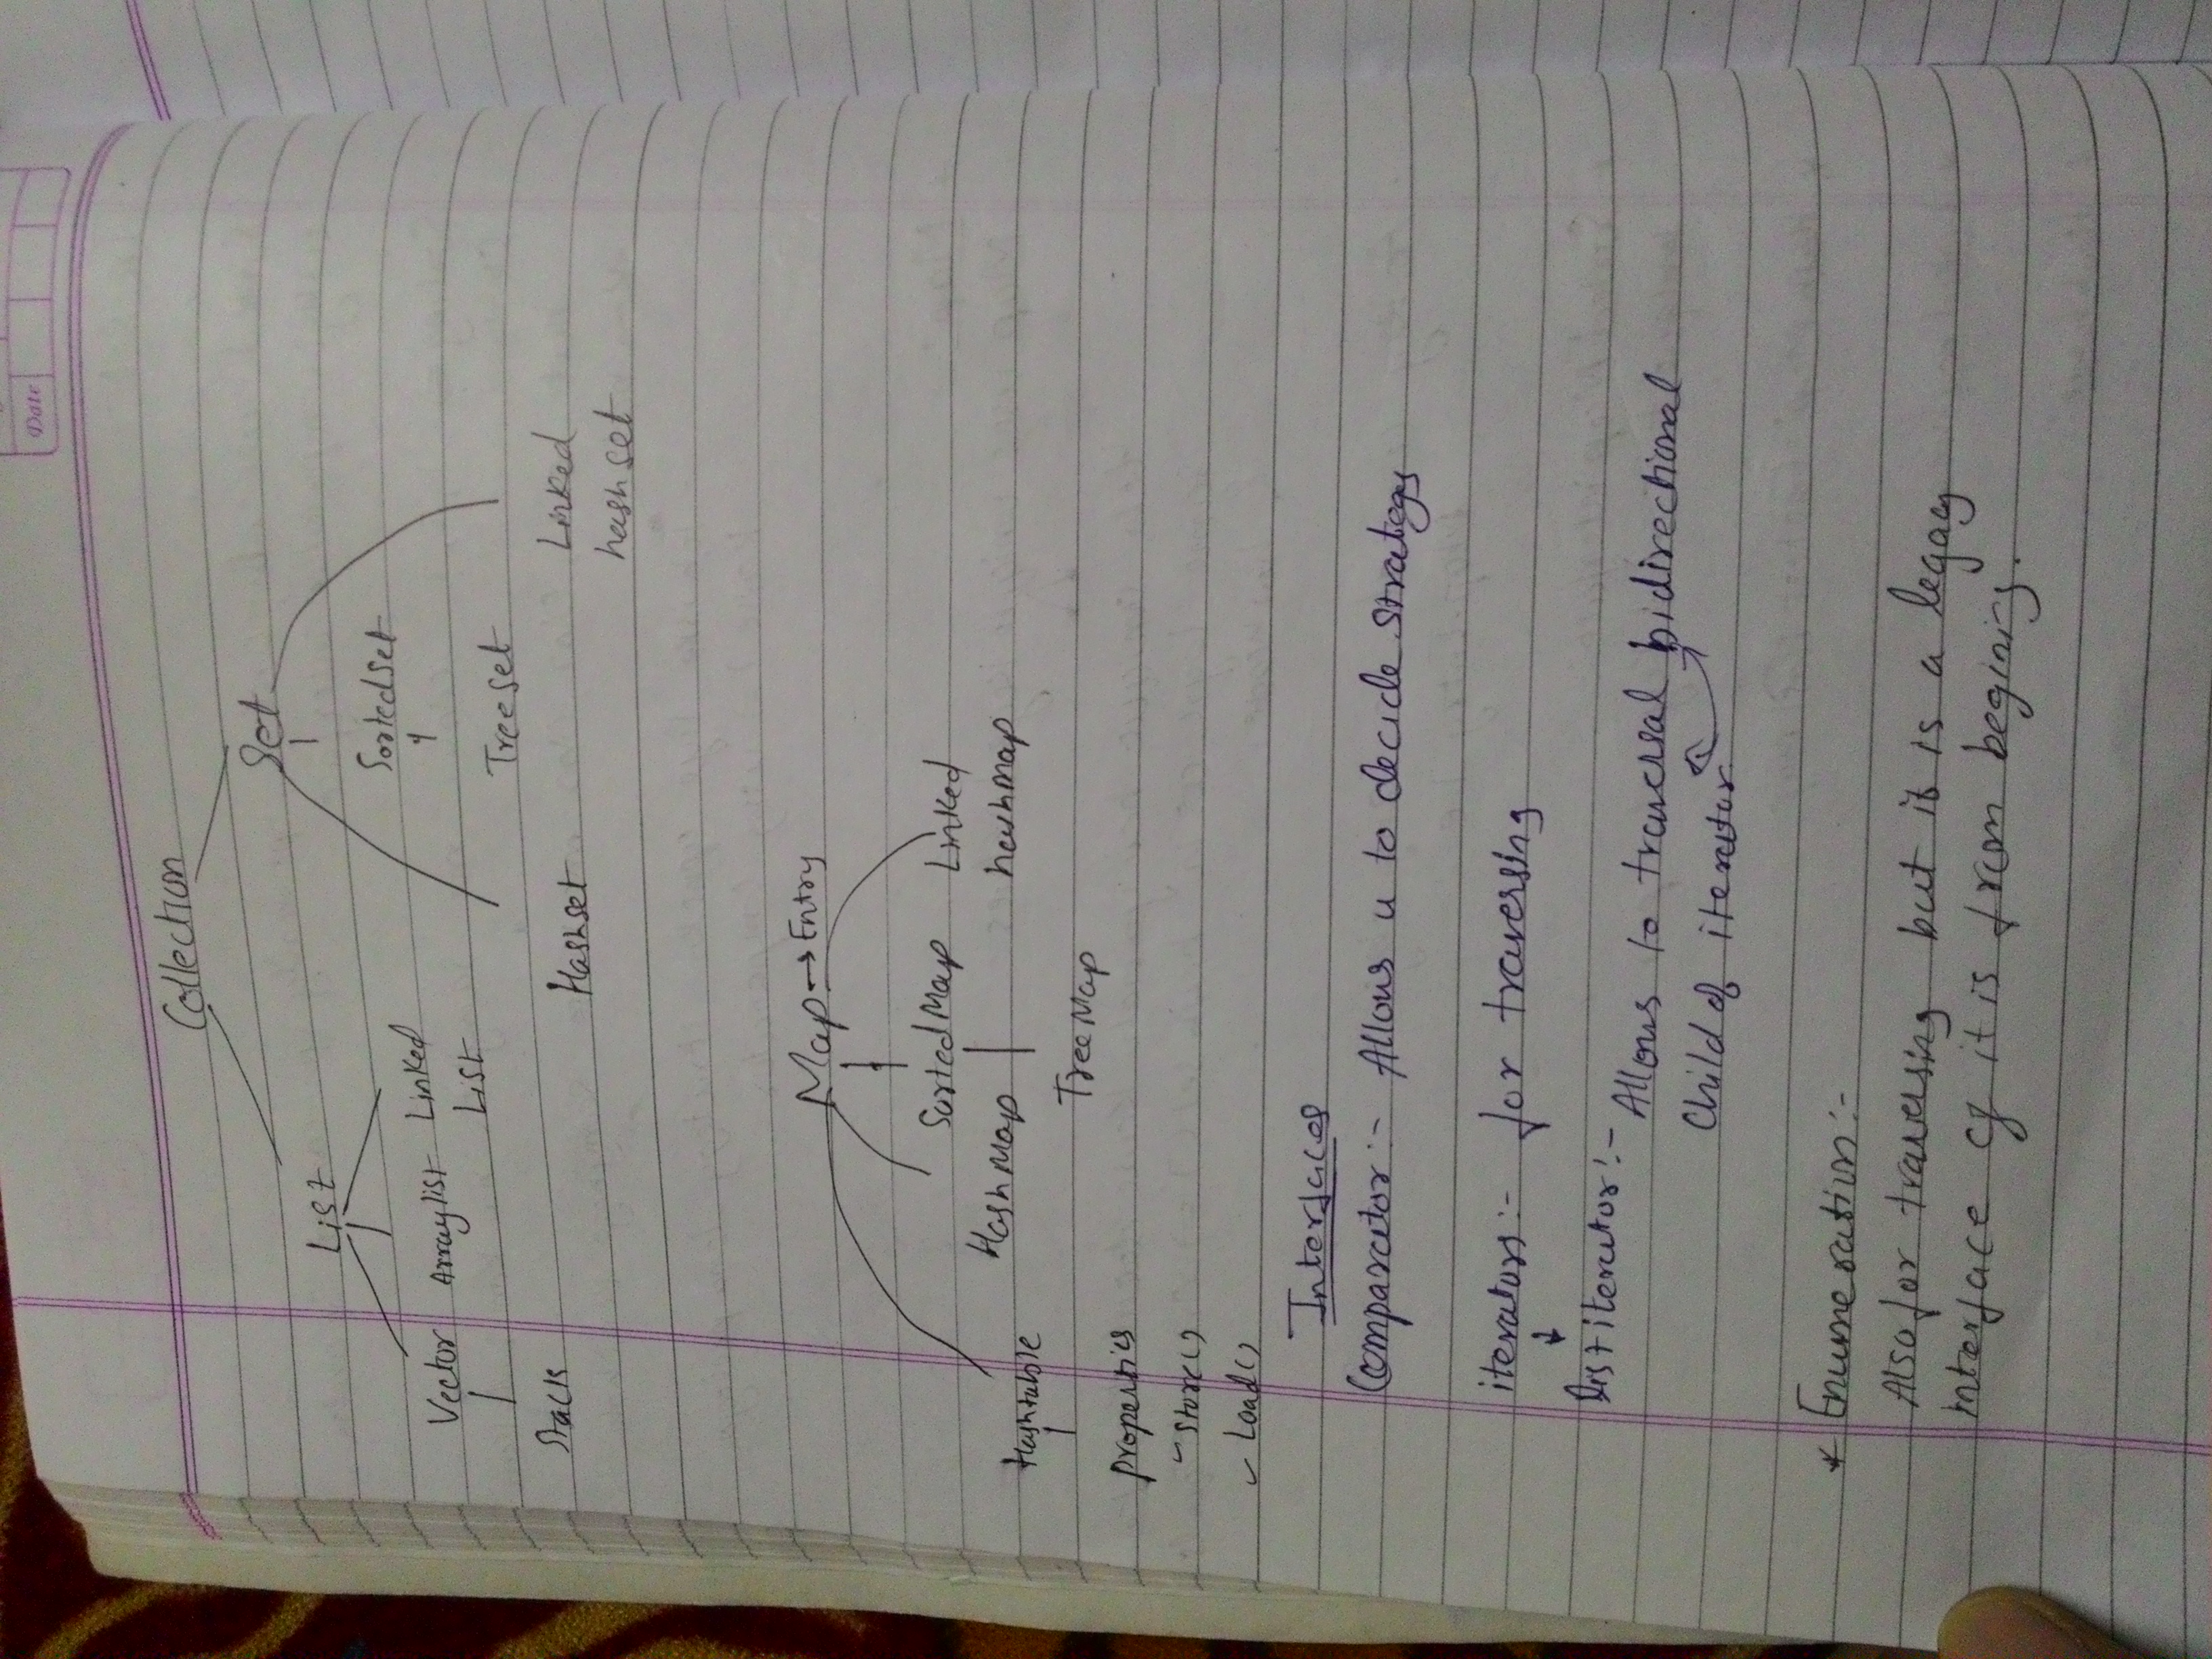 Date
Collection
Set
List
Sortedset
Vector Arraylist Linked
List
Treeset
Stack
Hashset
Linked
hash set
Map → Entry
SortedMap Linked
HashMap hashmap
Hashtable
TreeMap
properties
- Store()
- Load()
Interfaces
Comparator :- Allows u to decide strategy
iterators :- for traversing
List iterator :-
Allows to traversal bidirectional
Child of iterator
* Enumeration :-
Also for traversing but it is a legacy
interface it is from begining.